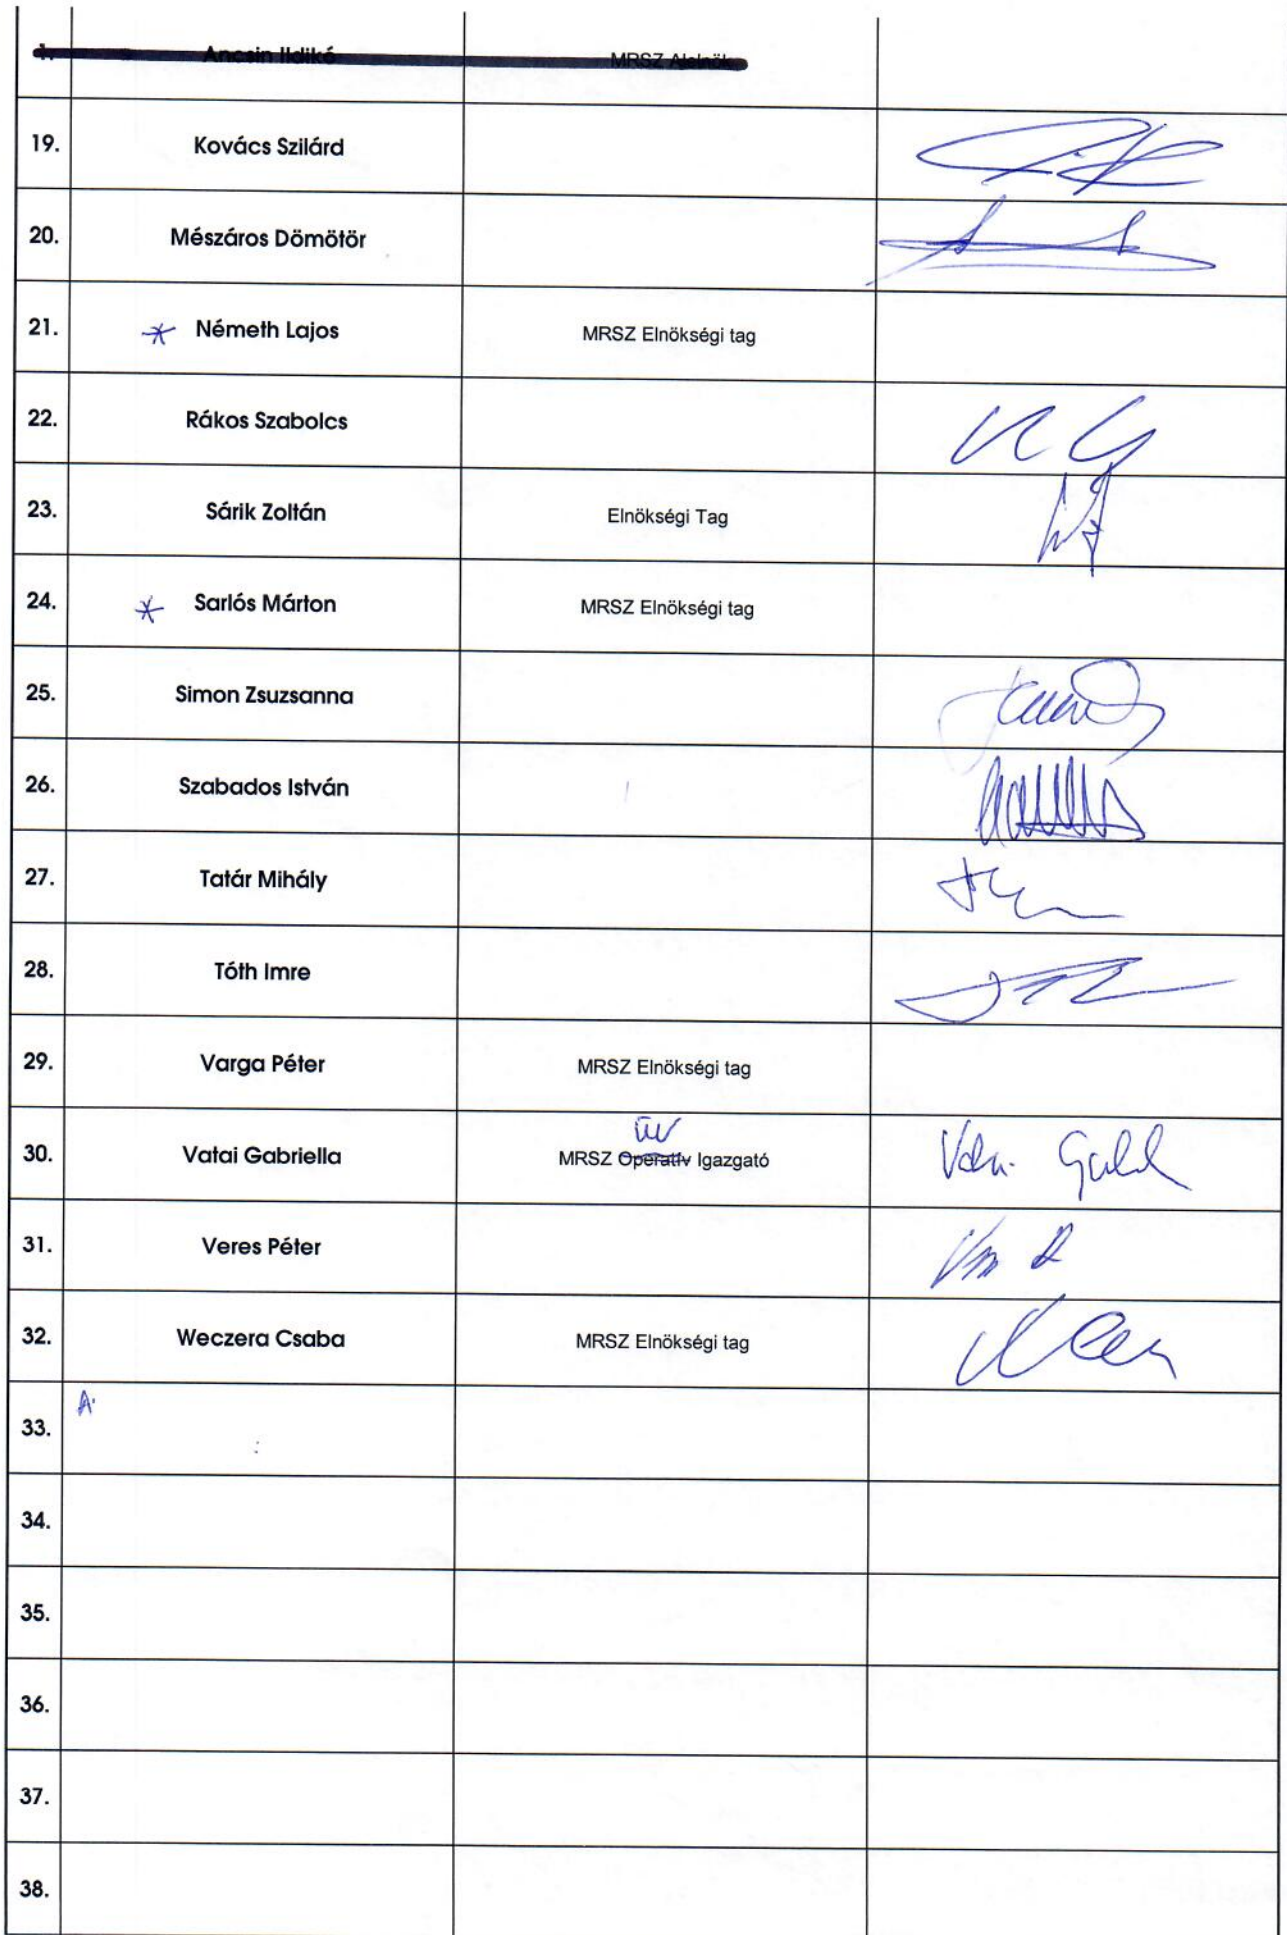 1. Ancsin Ildikó MRSZ Alelnök
19. Kovács Szilárd
20. Mészáros Dömötör
21. * Németh Lajos MRSZ Elnökségi tag
22. Rákos Szabolcs
23. Sárik Zoltán Elnökségi Tag
24. * Sarlós Márton MRSZ Elnökségi tag
25. Simon Zsuzsanna
26. Szabados István
27. Tatár Mihály
28. Tóth Imre
29. Varga Péter MRSZ Elnökségi tag
30. Vatai Gabriella MRSZ Operatív Igazgató
31. Veres Péter
32. Weczera Csaba MRSZ Elnökségi tag
33. A.
34.
35.
36.
37.
38.